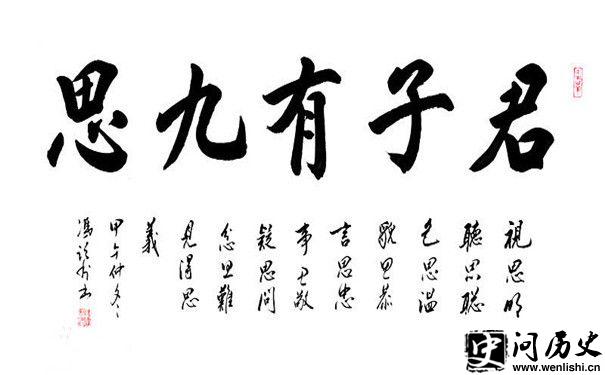 君子有九思
視思明
聽思聰
色思温
貌思恭
言思忠
事思敬
疑思問
忿思難
見得思
義
甲午仲冬
馮書
史 问历史
www.wenlishi.cn